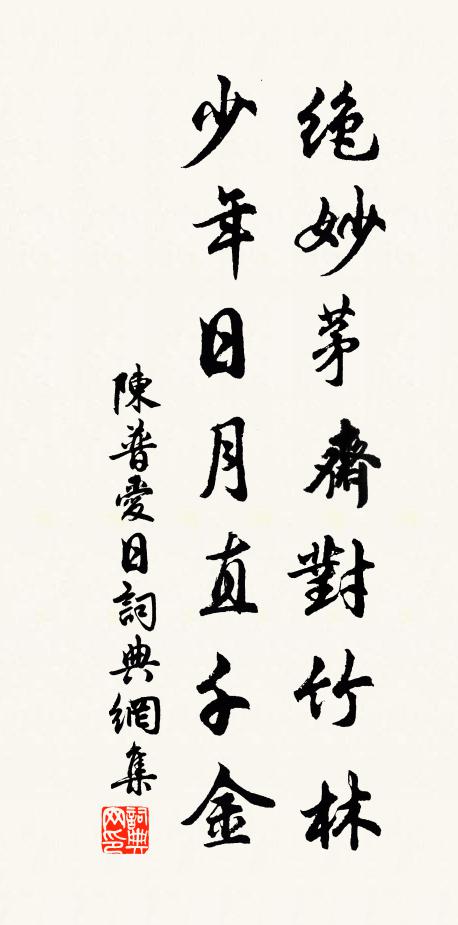 绝妙茅齋對竹林
少年日月直千金
陳普愛日詞典網集
詞典网印